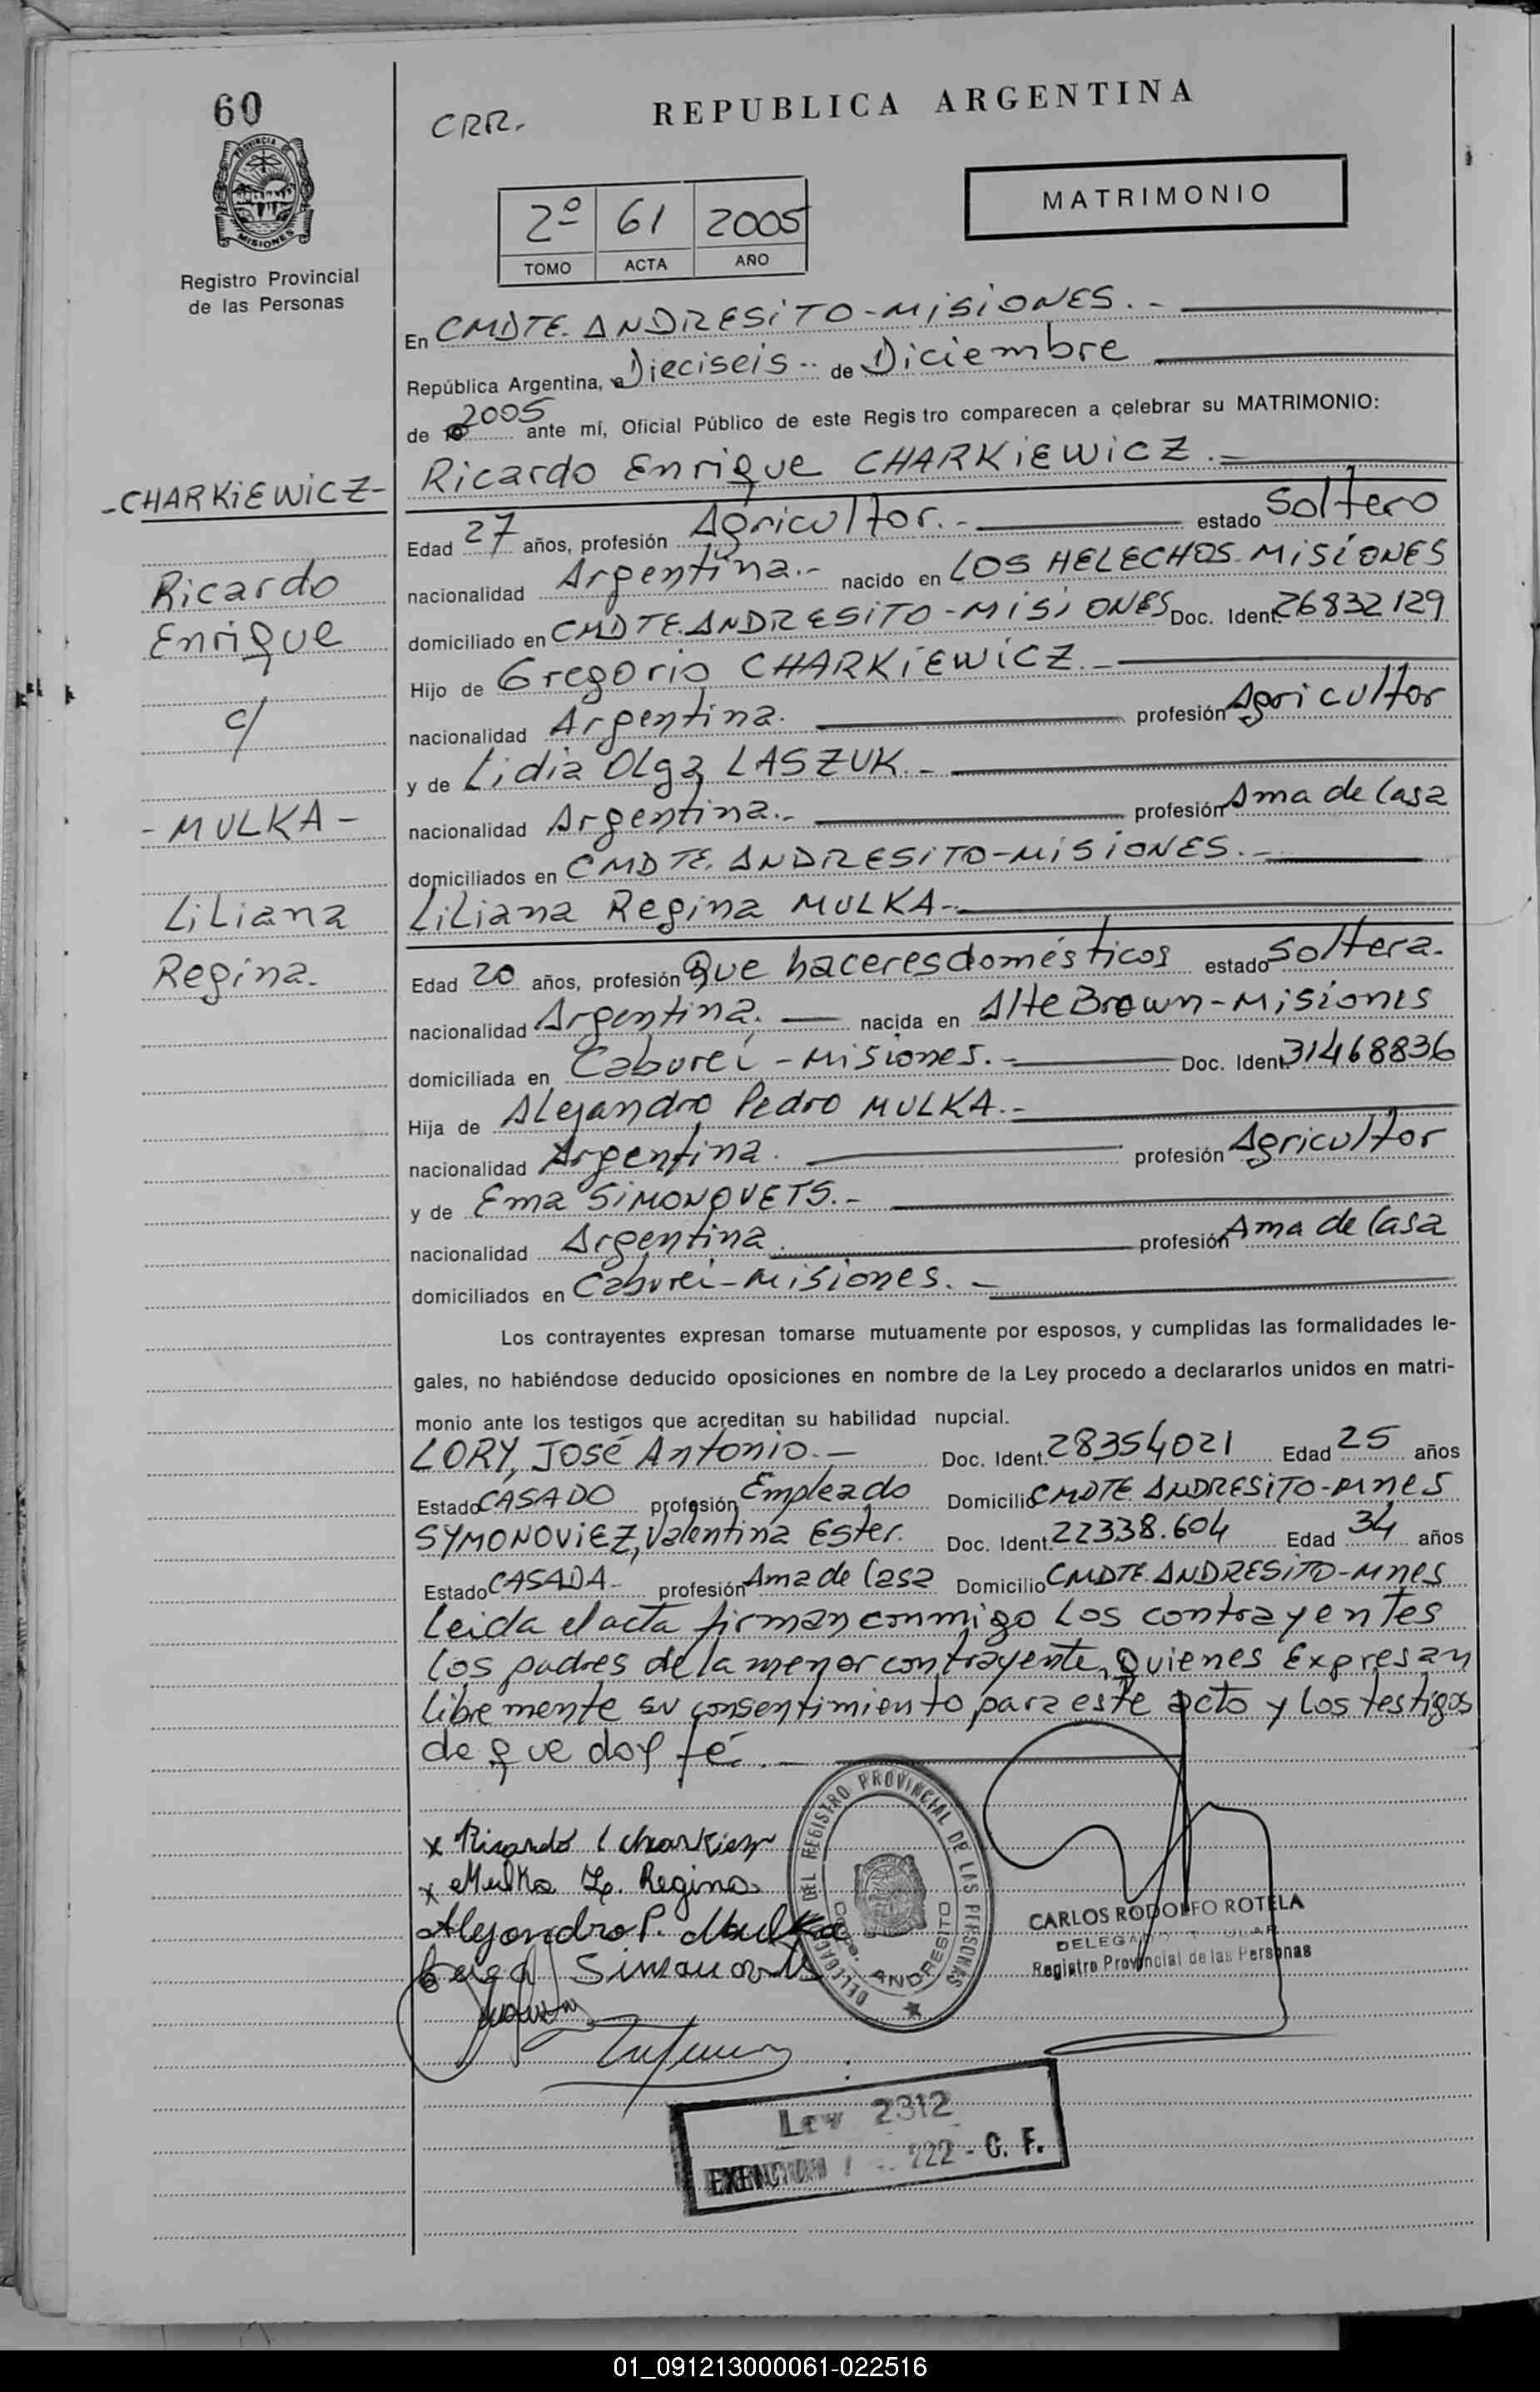 60
CRR.
REPUBLICA ARGENTINA
PROVINCIA DE
MISIONES
Registro Provincial
de las Personas
MATRIMONIO
2º 61 2005
TOMO ACTA AÑO
En CMDTE. ANDRESITO-MISIONES.-
República Argentina, a Dieciseis-- de Diciembre
de 2005 ante mí, Oficial Público de este Regis tro comparecen a celebrar su MATRIMONIO:
-CHARKIEWICZ-
Ricardo
Enrique
c/
-MULKA-
Liliana
Regina.
Ricardo Enrique CHARKIEWICZ.-
Edad 27 años, profesión Agricultor.- estado Soltero
nacionalidad Argentina.- nacido en LOS HELECHOS-MISIONES
domiciliado en CMDTE.ANDRESITO-MISIONES Doc. Ident. 26832129
Hijo de Gregorio CHARKIEWICZ.-
nacionalidad Argentina. profesión Agricultor
y de Lidia Olga LASZUK.-
nacionalidad Argentina.- profesión Ama de Casa
domiciliados en CMDTE. ANDRESITO-MISIONES.-
Liliana Regina MULKA-.
Edad 20 años, profesión Que haceres domésticos estado Soltera.
nacionalidad Argentina. nacida en Alte Brown-Misiones
domiciliada en Caburei-Misiones.- Doc. Ident. 31468836
Hija de Alejandro Pedro MULKA.-
nacionalidad Argentina. profesión Agricultor
y de Ema SIMONOVETS.-
nacionalidad Argentina. profesión Ama de Casa
domiciliados en Caburei-Misiones.-
Los contrayentes expresan tomarse mutuamente por esposos, y cumplidas las formalidades le-
gales, no habiéndose deducido oposiciones en nombre de la Ley procedo a declararlos unidos en matri-
monio ante los testigos que acreditan su habilidad nupcial.
LORY, JOSÉ Antonio.- Doc. Ident. 28354021 Edad 25 años
Estado CASADO profesión Empleado Domicilio CMDTE ANDRESITO-Mnes
SYMONOVIEZ, Valentina Ester. Doc. Ident. 22338.604 Edad 34 años
Estado CASADA- profesión Ama de Casa Domicilio CMDTE.ANDRESITO-Mnes
Leida el acta firman conmigo los contrayentes
los padres de la menor contrayente, Quienes Expresan
libremente su consentimiento para este acto y los testigos
de que doy fé.-
x Ricardo
x Mulka L. Regina
Alejandro P. Mulka
DELEGACION DEL REGISTRO PROVINCIAL DE LAS PERSONAS
ANDRESITO
CARLOS RODOLFO ROTELA
DELEGADO TITULAR
Registro Provincial de las Personas
Ley 2312
222 - C. F.
01_091213000061-022516